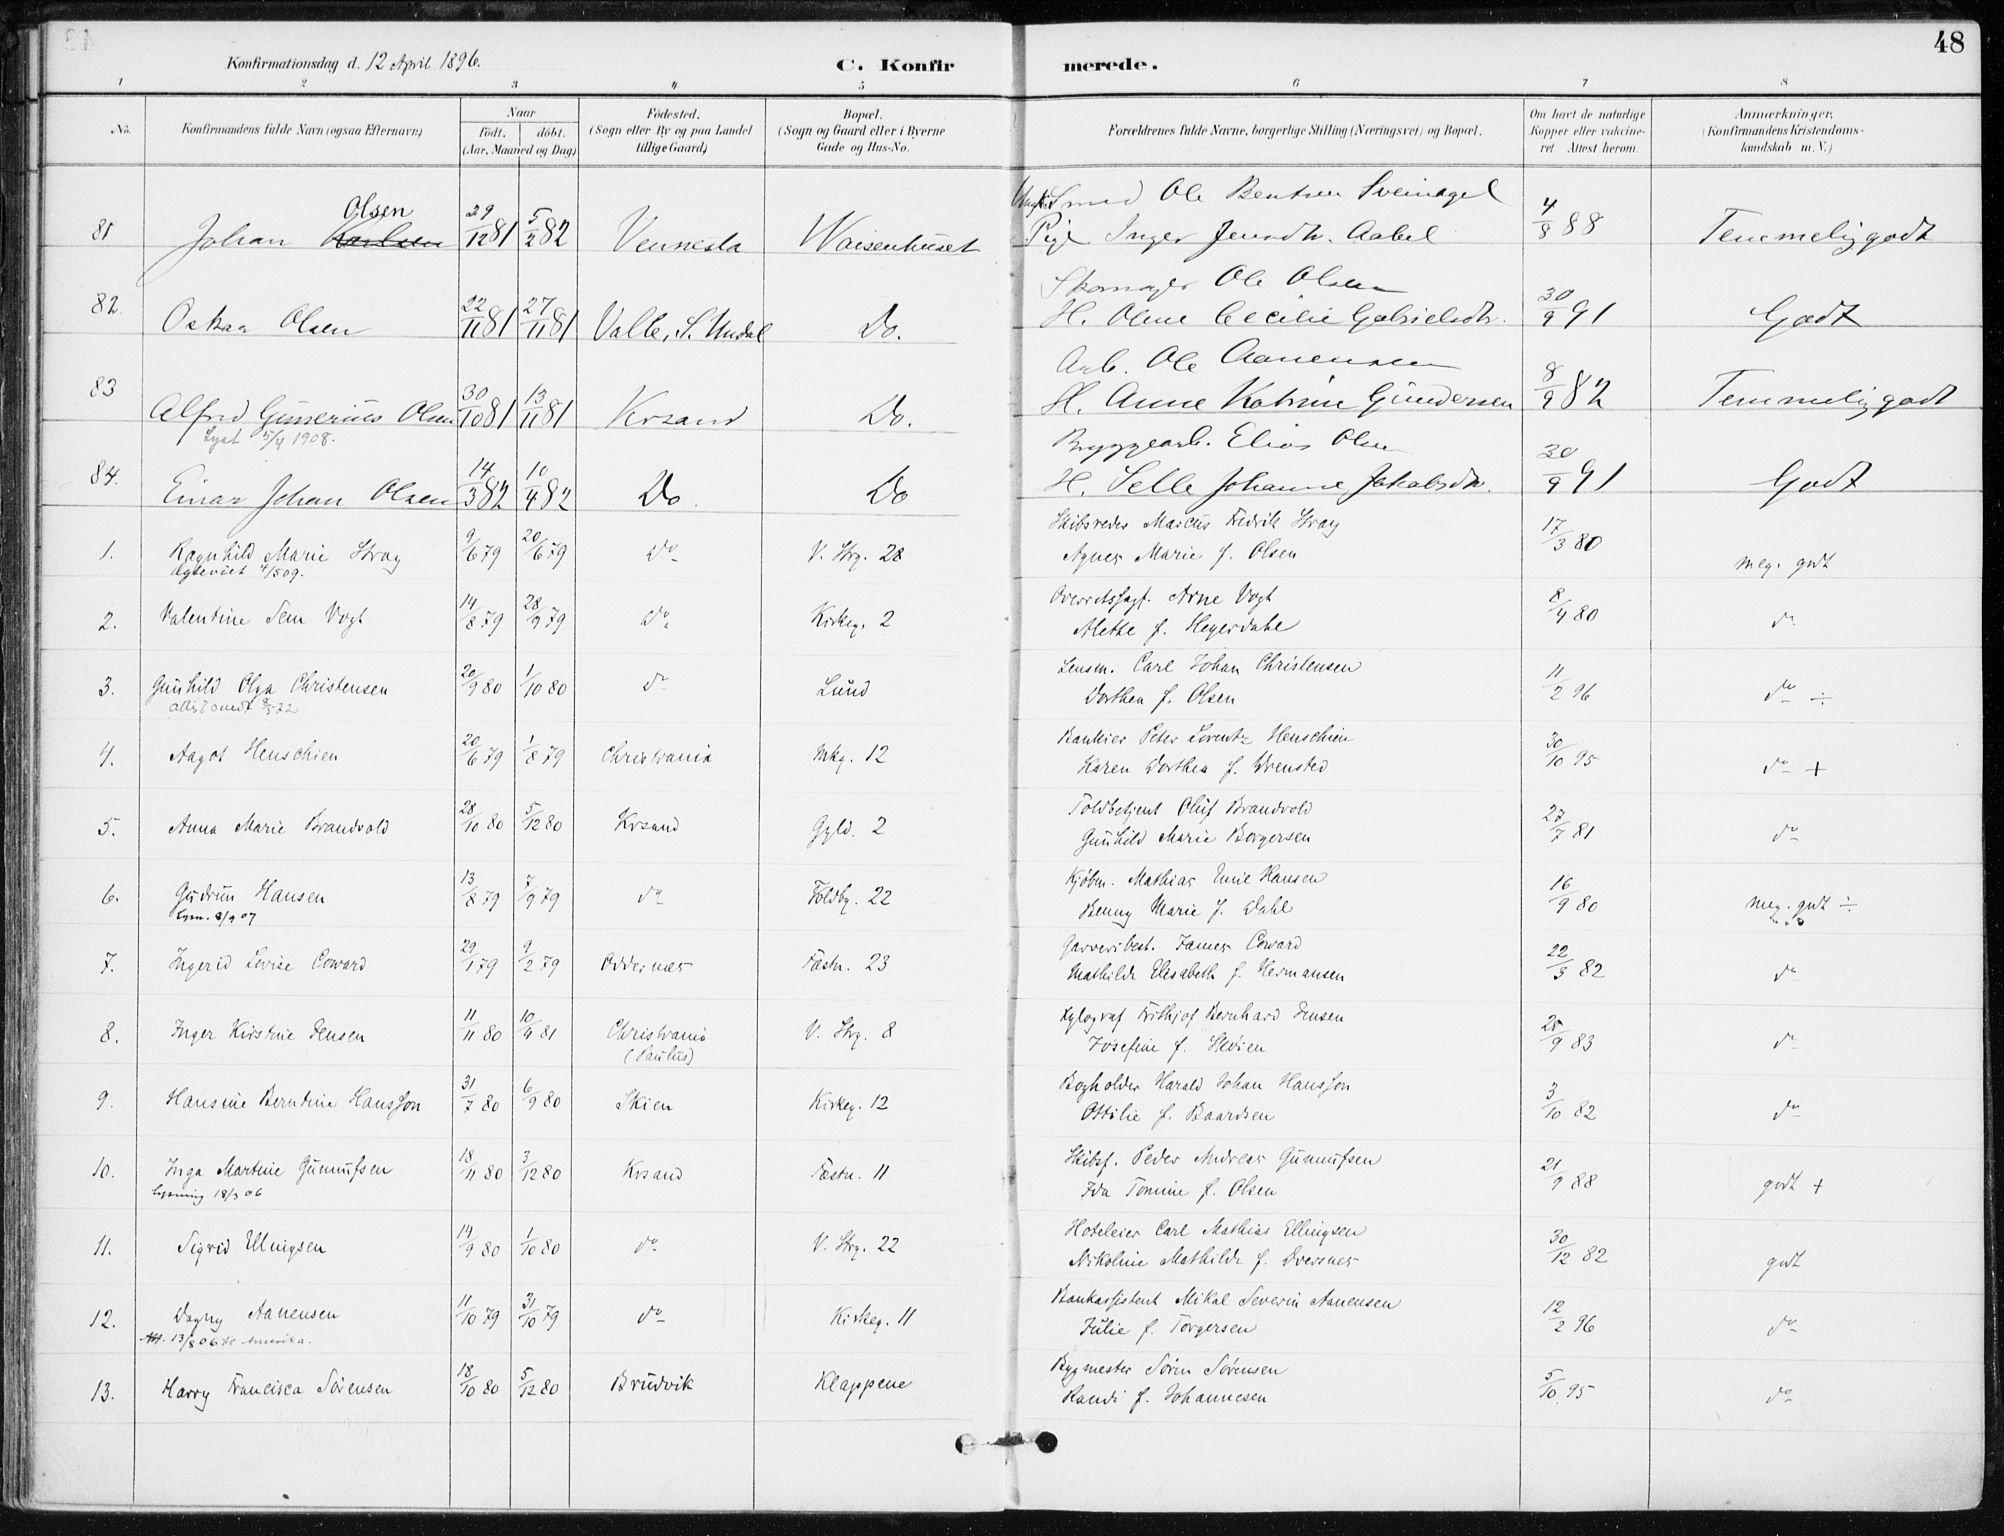 48
Konfirmationsdag d. 12 April 1896.
C. Konfirmerede.
1 2 3 4 5 6 7 8
No.
Konfirmandens fulde Navn (ogsaa Efternavn)
Naar
født. døbt.
(Aar, Maaned og Dag)
Fødested.
(Sogn eller By og paa Landet
tillige Gaard)
Bopæl.
(Sogn og Gaard eller i Byerne
Gade og Hus-No.
Forældrenes fulde Navne, borgerlige Stilling (Næringsvei) og Bopæl.
Om havt de naturlige
Kopper eller vakcine-
ret Attest herom.
Anmærkninger.
(Konfirmandens Kristendoms-
kundskab m. V.)
Smed Ole Bentsen Sveinagel
81 Johan Karlsen Olsen 29/12 81 5/2 82 Vennesla Waisenhuset Pige Inger Jensdtr. Aabel 4/8 88 Temmelig godt
Skomager Ole Olsen
82. Oskar Olsen 22/11 81 27/11 81 Valle, S. Undal Do. H. Oline Cecilie Gabrielsdtr. 30/9 91 Godt
Arb. Ole Aanensen
83 Alfred Gunerius Olsen 30/10 81 13/11 81 Krsand Do. H. Anne Katrine Gundersen 8/9 82 Temmelig godt
Lyst 5/4 1908.
Bryggearb. Elias Olsen
84. Einar Johan Olsen 14/3 82 10/4 82 Do. Do H. Selle Johanne Jakobsdtr. 30/9 91 Godt
Skibsreder Marcus Fredrik Stray
1. Ragnhild Marie Stray 9/6 79 20/6 79 do V. Strg. 28 Agnes Marie f. Olsen 17/3 80 meg. godt
Ægteviet 4/5 09.
Overretssagf. Arne Vogt
2. Valentine Sem Vogt 14/8 79 28/9 79 do Kirkeg. 2 Alette f. Heyerdahl 8/4 80 do
Lensm. Carl Johan Christensen
3. Gunhild Olga Christensen 20/9 80 1/10 80 do Lund Dorthea f. Olsen 11/2 96 do ÷
Bankier Peter Lorentz Henschien
4. Aagot Henschien 20/6 79 1/8 79 Christiania Mkg. 12 Karen Dorthea f. Wrensted 30/10 95 do +
Toldbetjent Oluf Brandvold
5. Anna Marie Brandvold 28/10 80 5/12 80 Krsand Gyld. 2 Gunhild Marie Borgersen 27/7 81 do
Kjøbm. Mathias Emie Hansen
6. Gudrun Hansen 13/8 79 7/9 79 do Toldbg. 22 Benny Marie f. Dahl 16/9 80 meg. godt ÷
Lysn. 8/9 07
Garveribest. James Coward
7. Ingerid Lovise Coward 29/1 79 9/2 79 Oddernæs Fæstn. 23 Mathilde Elisabeth f. Hermansen 22/3 82 do
Xylograf Frithjof Bernhard Jensen
8. Inger Kirstine Jensen 11/11 80 10/4 81 Christiania (Paulus) V. Strg. 8 Josefine f. 25/9 83 do
Bogholder Harald Johan Hansson
9. Hansine Berntine Hansson 31/7 80 6/9 80 Skien Kirkeg. 12 Ottilie f. Baardsen 3/10 82 do
Skibsf. Peder Andreas Gunnufsen
10. Inga Martine Gunnufsen 18/11 80 3/12 80 Krsand Fæstn. 11 Ida Tomine f. Olsen 21/9 88 godt +
Lysning 18/3 06
Hoteleier Carl Mathias Ellingsen
11. Sigrid Ellingsen 14/9 80 1/10 80 do V. Strg. 22 Nikoline Mathilde f. Dversnes 30/12 82 godt
Bankassistent Mikal Severin Aanensen
12. Dagny Aanensen 11/10 79 31/10 79 do Kirkeg. 11 Julie f. Torgersen 12/2 96 do
Att. 13/8 06 til Amerika.
Bygmester Sørin Sørensen
13. Harry Francisca Sørensen 18/10 80 5/12 80 Brudvik Klappene Randi f. Johannesen 5/10 95 do